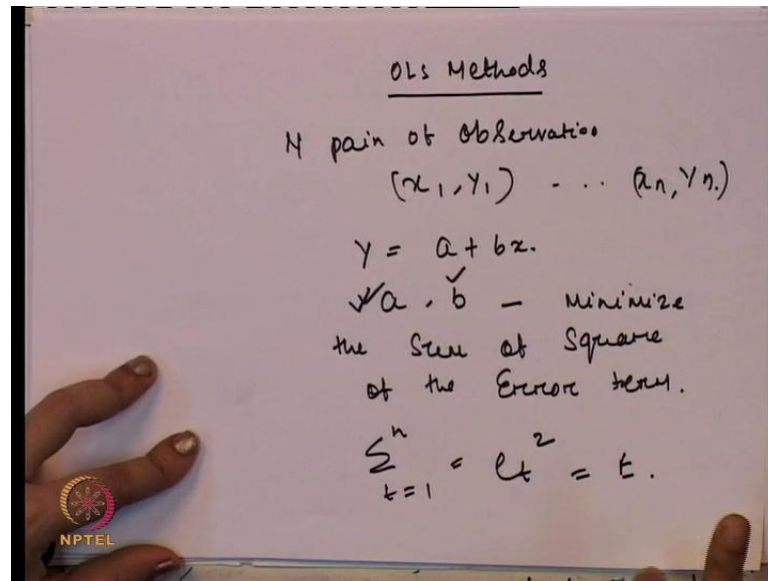 OLS Methods
N pair of Observation
(x1, Y1) - .. (xn, Yn.)
Y = a + bx.
a, b - Minimize
the Sum of Square
of the Error term.
Σ^n_{t=1} = et^2 = E.
NPTEL